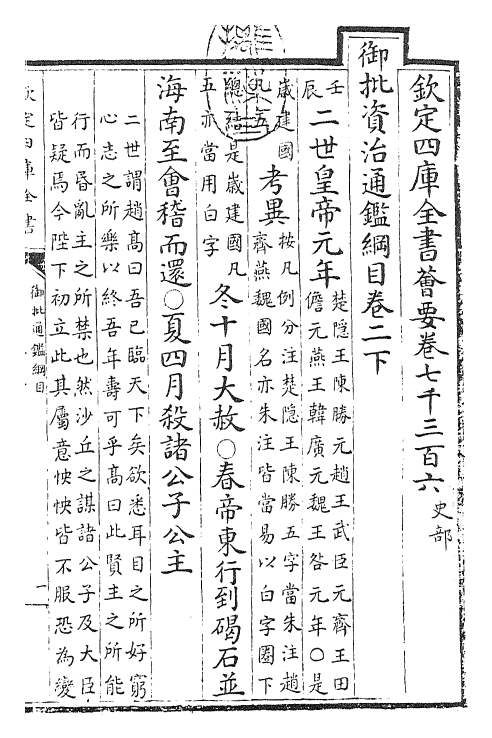 欽定四庫全書薈要卷七千三百六 史部
御批資治通鑑綱目卷二下
壬辰 二世皇帝元年 楚隠王陳勝元趙王武臣元齊王田
儋元燕王韓廣元魏王咎元年○是
歲建國
凡五 考異 按凡例分注楚隠王陳勝五字當朱注趙
齊燕魏國名亦朱注皆當易以白字圈下
總結是歲建國凡
五亦當用白字 冬十月大赦○春帝東行到碣石並
海南至會稽而還○夏四月殺諸公子公主
二世謂趙髙曰吾已臨天下矣欲悉耳目之所好窮
心志之所樂以終吾年壽可乎髙曰此賢主之所能
行而昏亂主之所禁也然沙丘之謀諸公子及大臣
皆疑焉今陛下初立此其屬意怏怏皆不服恐為變
欽定四庫全書
御批通鑑綱目
一